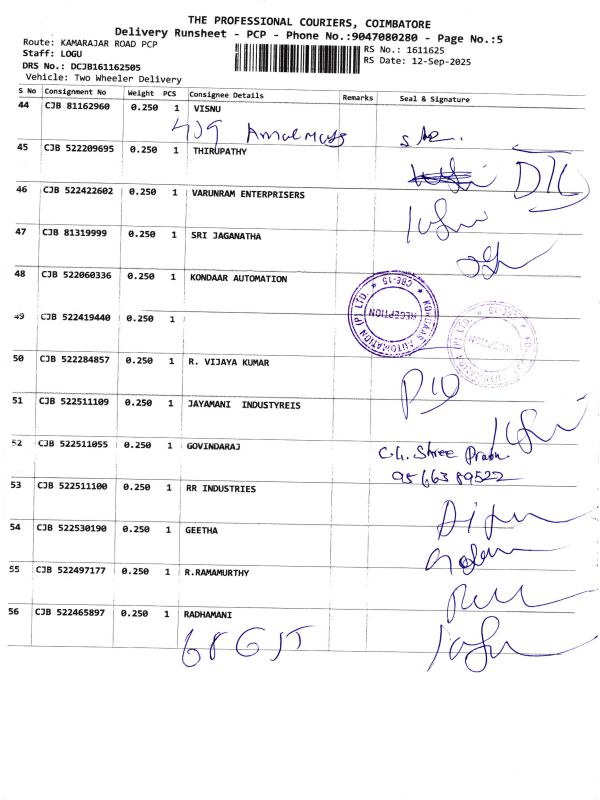 THE PROFESSIONAL COURIERS, COIMBATORE
Delivery Runsheet - PCP - Phone No.:9047080280 - Page No.:5
Route: KAMARAJAR ROAD PCP
RS No.: 1611625
Staff: LOGU
RS Date: 12-Sep-2025
DRS No.: DCJB161162505
Vehicle: Two Wheeler Delivery
S No Consignment No Weight PCS Consignee Details Remarks Seal & Signature
44 CJB 81162960 0.250 1 VISNU
409
45 CJB 522209695 0.250 1 THIRUPATHY
46 CJB 522422602 0.250 1 VARUNRAM ENTERPRISERS
47 CJB 81319999 0.250 1 SRI JAGANATHA
48 CJB 522060336 0.250 1 KONDAAR AUTOMATION
KONDAAS AUTOMATION (P) LTD. ★ CBE-15 ★
RECEPTION
49 CJB 522419440 0.250 1
50 CJB 522284857 0.250 1 R. VIJAYA KUMAR
51 CJB 522511109 0.250 1 JAYAMANI INDUSTYREIS
52 CJB 522511055 0.250 1 GOVINDARAJ
Shree
9566389522
53 CJB 522511100 0.250 1 RR INDUSTRIES
54 CJB 522530190 0.250 1 GEETHA
55 CJB 522497177 0.250 1 R.RAMAMURTHY
56 CJB 522465897 0.250 1 RADHAMANI